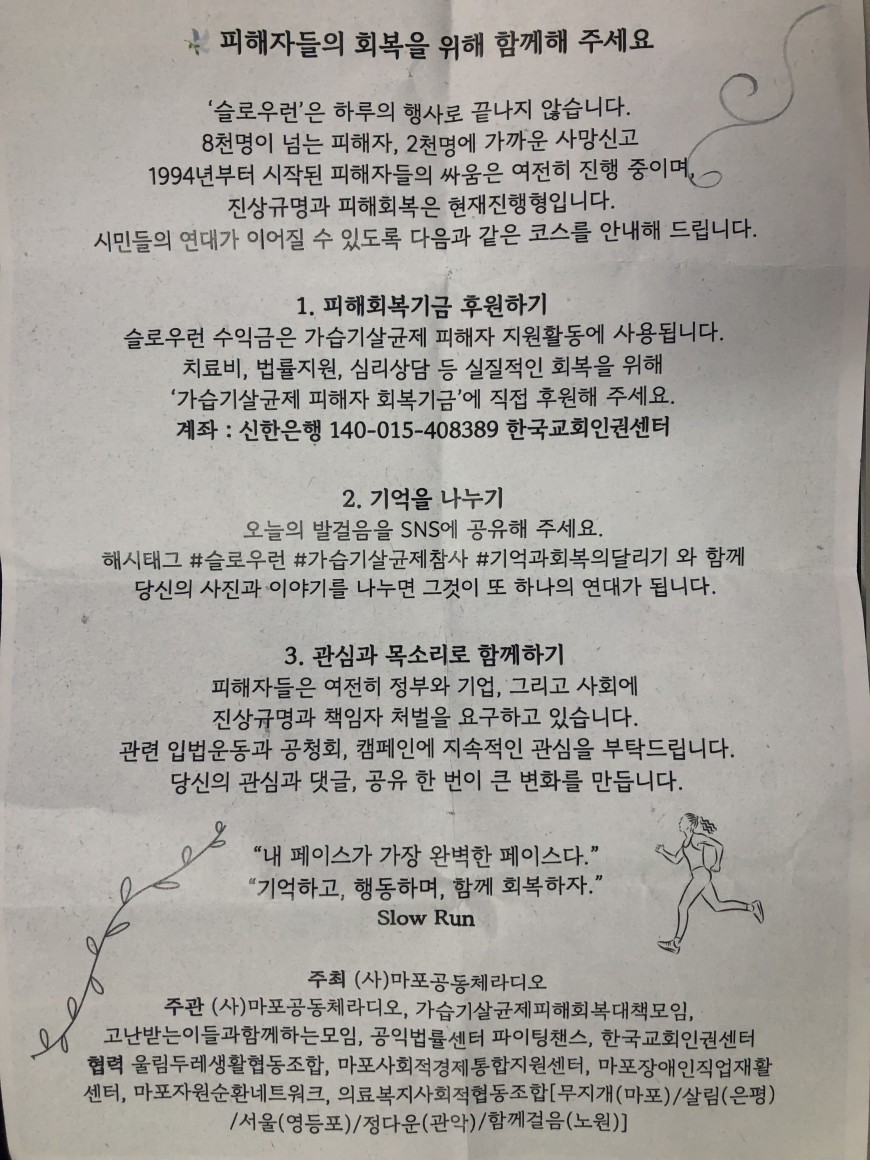 피해자들의 회복을 위해 함께해 주세요
‘슬로우런’은 하루의 행사로 끝나지 않습니다.
8천명이 넘는 피해자, 2천명에 가까운 사망신고
1994년부터 시작된 피해자들의 싸움은 여전히 진행 중이며,
진상규명과 피해회복은 현재진행형입니다.
시민들의 연대가 이어질 수 있도록 다음과 같은 코스를 안내해 드립니다.
1. 피해회복기금 후원하기
슬로우런 수익금은 가습기살균제 피해자 지원활동에 사용됩니다.
치료비, 법률지원, 심리상담 등 실질적인 회복을 위해
‘가습기살균제 피해자 회복기금’에 직접 후원해 주세요.
계좌 : 신한은행 140-015-408389 한국교회인권센터
2. 기억을 나누기
오늘의 발걸음을 SNS에 공유해 주세요.
해시태그 #슬로우런 #가습기살균제참사 #기억과회복의달리기 와 함께
당신의 사진과 이야기를 나누면 그것이 또 하나의 연대가 됩니다.
3. 관심과 목소리로 함께하기
피해자들은 여전히 정부와 기업, 그리고 사회에
진상규명과 책임자 처벌을 요구하고 있습니다.
관련 입법운동과 공청회, 캠페인에 지속적인 관심을 부탁드립니다.
당신의 관심과 댓글, 공유 한 번이 큰 변화를 만듭니다.
“내 페이스가 가장 완벽한 페이스다.”
“기억하고, 행동하며, 함께 회복하자.”
Slow Run
주최 (사)마포공동체라디오
주관 (사)마포공동체라디오, 가습기살균제피해회복대책모임,
고난받는이들과함께하는모임, 공익법률센터 파이팅챈스, 한국교회인권센터
협력 울림두레생활협동조합, 마포사회적경제통합지원센터, 마포장애인직업재활
센터, 마포자원순환네트워크, 의료복지사회적협동조합[무지개(마포)/살림(은평)
/서울(영등포)/정다운(관악)/함께걸음(노원)]